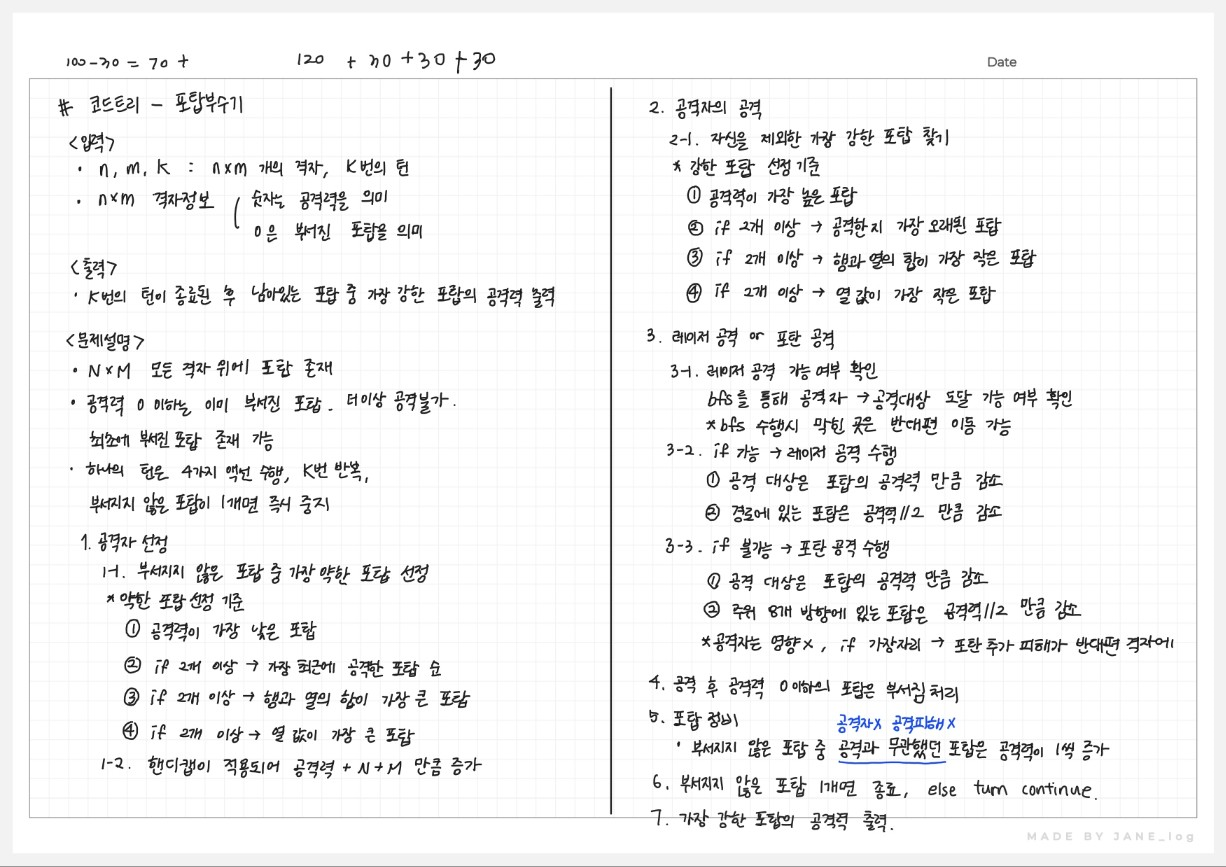 100-30 = 70 +
120 + 30 + 30 + 30
Date
# 코드트리 - 포탑부수기
<입력>
· n, m, K : n×m 개의 격자, K번의 턴
· n×m 격자정보 ( 숫자는 공격력을 의미
0은 부서진 포탑을 의미
<출력>
· K번의 턴이 종료된 후 남아있는 포탑 중 가장 강한 포탑의 공격력 출력
<문제설명>
· N×M 모든 격자 위에 포탑 존재
· 공격력 0 이하는 이미 부서진 포탑. 더이상 공격불가.
최초에 부서진 포탑 존재 가능
· 하나의 턴은 4가지 액션 수행, K번 반복,
부서지지 않은 포탑이 1개면 즉시 중지
1. 공격자 선정
1-1. 부서지지 않은 포탑 중 가장 약한 포탑 선정
* 약한 포탑 선정 기준
① 공격력이 가장 낮은 포탑
② if 2개 이상 → 가장 최근에 공격한 포탑 순
③ if 2개 이상 → 행과 열의 합이 가장 큰 포탑
④ if 2개 이상 → 열 값이 가장 큰 포탑
1-2. 핸디캡이 적용되어 공격력 + N+M 만큼 증가
2. 공격자의 공격
2-1. 자신을 제외한 가장 강한 포탑 찾기
* 강한 포탑 선정 기준
① 공격력이 가장 높은 포탑
② if 2개 이상 → 공격한지 가장 오래된 포탑
③ if 2개 이상 → 행과 열의 합이 가장 작은 포탑
④ if 2개 이상 → 열 값이 가장 작은 포탑
3. 레이저 공격 or 포탄 공격
3-1. 레이저 공격 가능 여부 확인
bfs를 통해 공격자 → 공격대상 도달 가능 여부 확인
* bfs 수행시 막힌 곳은 반대편 이동 가능
3-2. if 가능 → 레이저 공격 수행
① 공격 대상은 포탑의 공격력 만큼 감소
② 경로에 있는 포탑은 공격력//2 만큼 감소
3-3. if 불가능 → 포탄 공격 수행
① 공격 대상은 포탑의 공격력 만큼 감소
② 주위 8개 방향에 있는 포탑은 공격력//2 만큼 감소
* 공격자는 영향×, if 가장자리 → 포탄 추가 피해가 반대편 격자에
4. 공격 후 공격력 0이하의 포탑은 부서짐 처리
5. 포탑 정비
공격자× 공격피해×
· 부서지지 않은 포탑 중 공격과 무관했던 포탑은 공격력이 1씩 증가
6. 부서지지 않은 포탑 1개면 종료, else turn continue.
7. 가장 강한 포탑의 공격력 출력.
MADE BY JANE_log